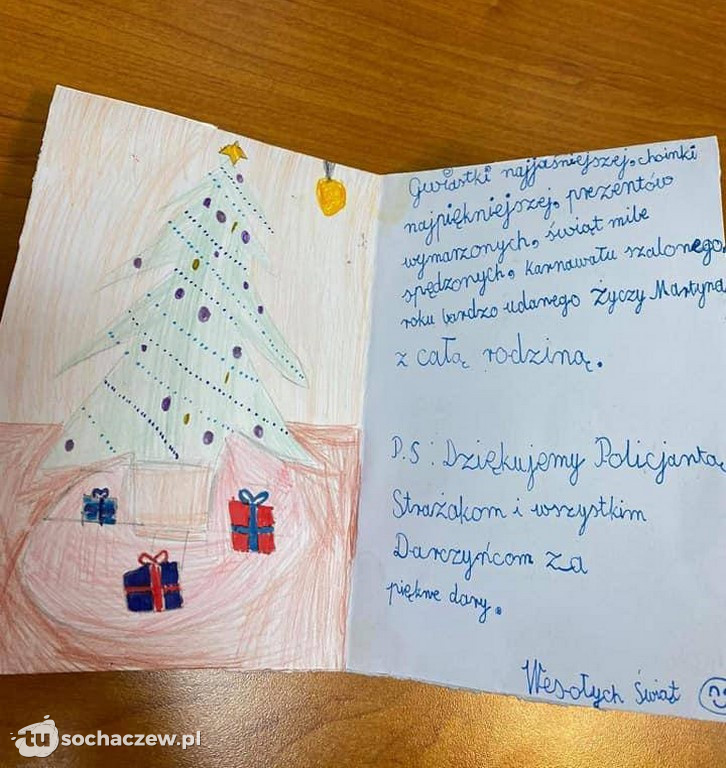 Gwiastki najjaśniejszej, choinki
najpiękniejszej, prezentów
wymarzonych, świąt mile
spędzonych, karnawału szalonego,
roku bardzo udanego Życzy Martyna
z całą rodziną.
P.S : Dziękujemy Policjantą,
Strażakom i wszystkim
Darczyńcom za
piękne dary.
Wesołych Świąt
tu sochaczew.pl